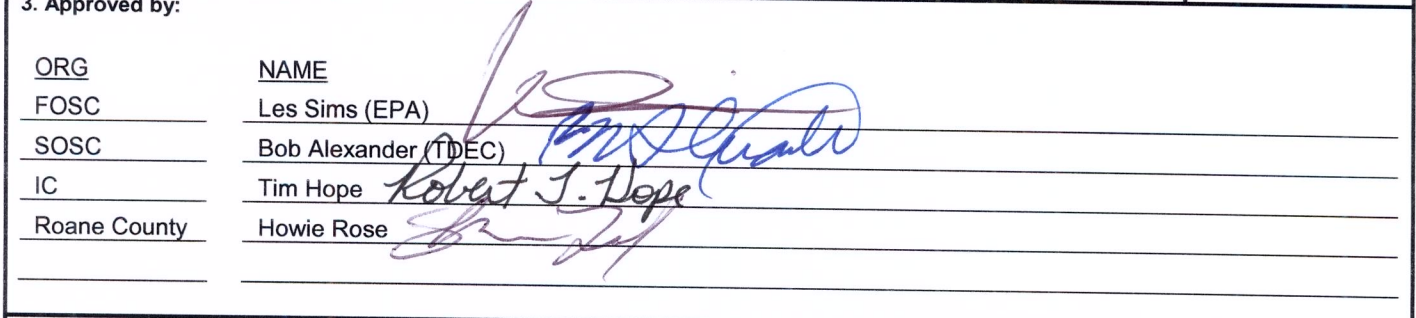 3. Approved by:
ORG NAME
FOSC Les Sims (EPA)
SOSC Bob Alexander (TDEC)
IC Tim Hope Robert T. Hope
Roane County Howie Rose